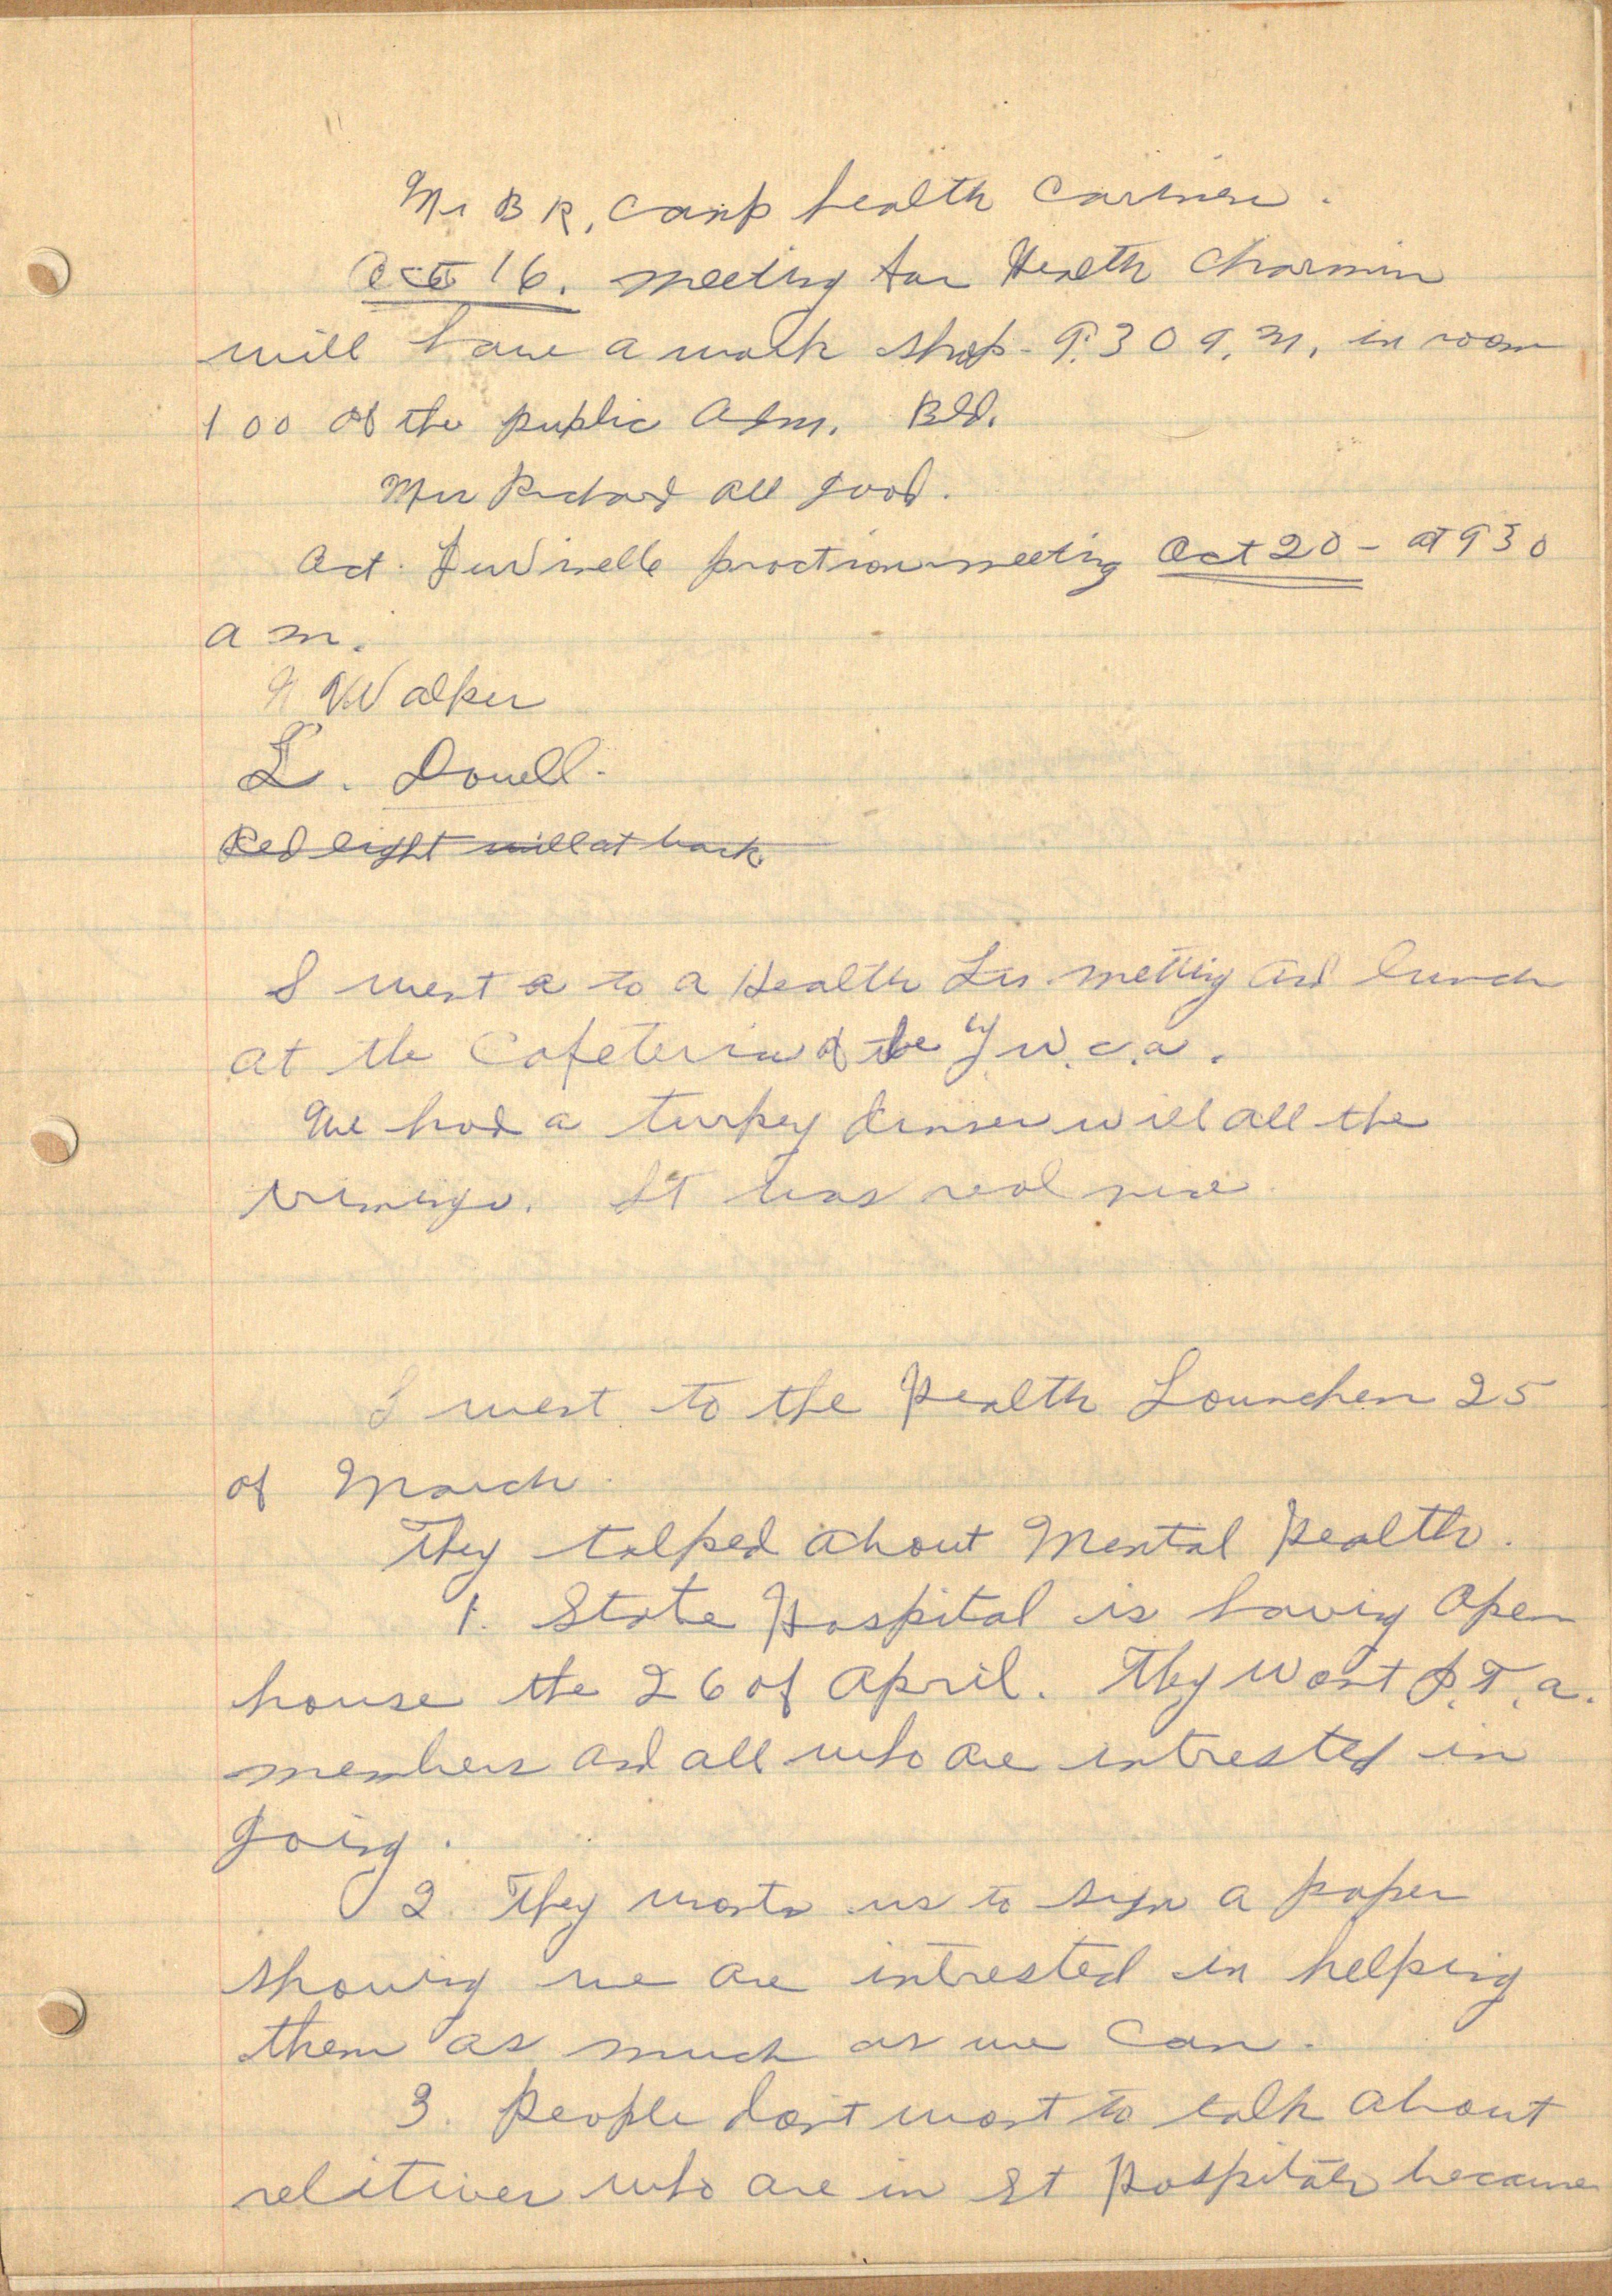 Mr B R, Camp health
Oct 16. meeting for Health Charmin
will have a work shop - 9:30 a.m. in room
100 of the public Adm. Bld.
Mrs Richard all good.
Oct. meeting Oct 20 - at 9 30
a m.
Walker
L. Dowell.
Red light will at back
I went a to a Health metting and lunch
at the Cafeteria of the Y.W.C.a.
We had a turkey dinner will all the
It was real nice
I went to the Health Lounchen 25
of March.
They talked about Mental Health.
1. State Hospital is having Open
house the 26 of April. They want P.T.a.
members and all who are intrested in
going.
2. They wants us to sign a paper
showing we are intrested in helping
them as much as we can.
3. People dont want to talk about
relitives who are in St Hospitals because